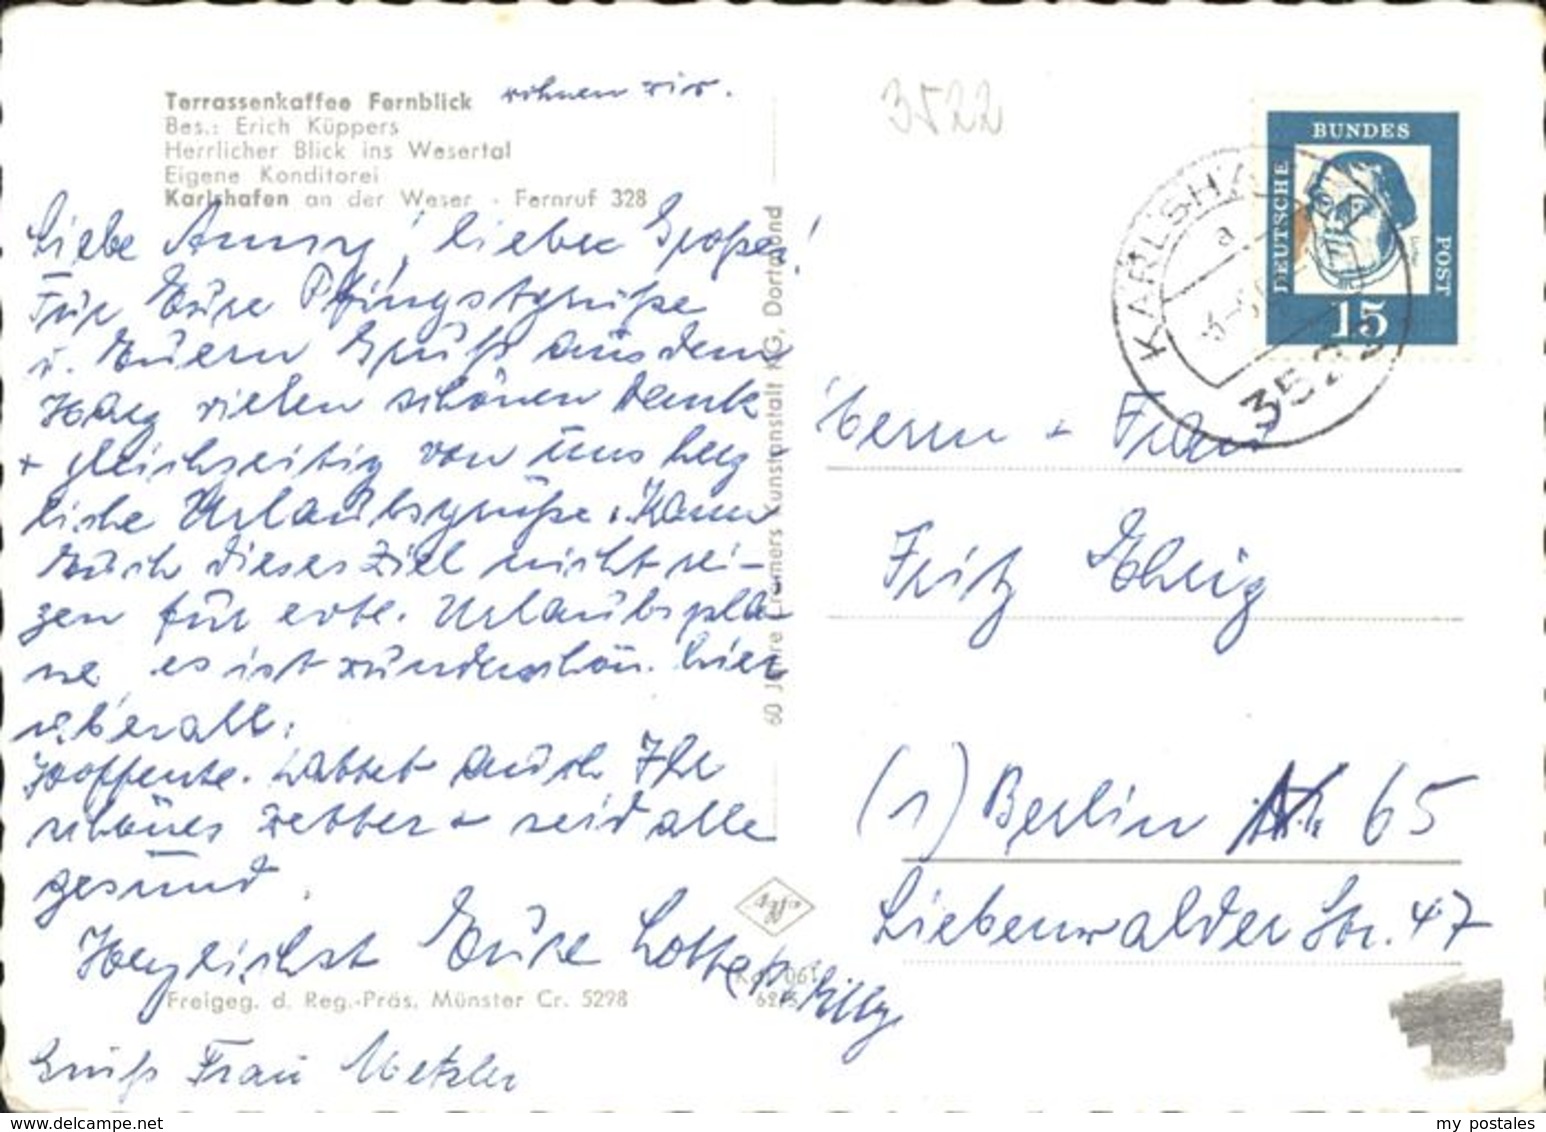 Terrassenkaffee Fernblick wohnen wir.
Bes.: Erich Küppers
Herrlicher Blick ins Wesertal
Eigene Konditorei
Karlshafen an der Weser - Fernruf 328
Liebe Anny, lieber Großer!
Für Eure Pfingstgrüße
u. Euern Gruß aus dem
Harz vielen schönen Dank
+ gleichzeitig von uns herz-
liche Urlaubsgrüße. Kann
Euch dieses Ziel nicht rei-
zen für evtl. Urlaubsplä-
ne, es ist wunderschön hier
überall.
Hoffentl. hattet auch Ihr
schönes Wetter + seid alle
gesund.
Herzlichst Eure Lotte + Willy
Freigeg. d. Reg.-Präs. Münster Cr. 5298
Gruß Frau Metzler
60 Jahre Cramers Kunstanstalt KG, Dortmund
Agfa
061
3522
DEUTSCHE BUNDES POST
Luther
15
KARLSHAFEN
a
352
Herrn + Frau
Fritz
(1) Berlin 65
Liebenwalder Str. 47
my postales
www.delcampe.net